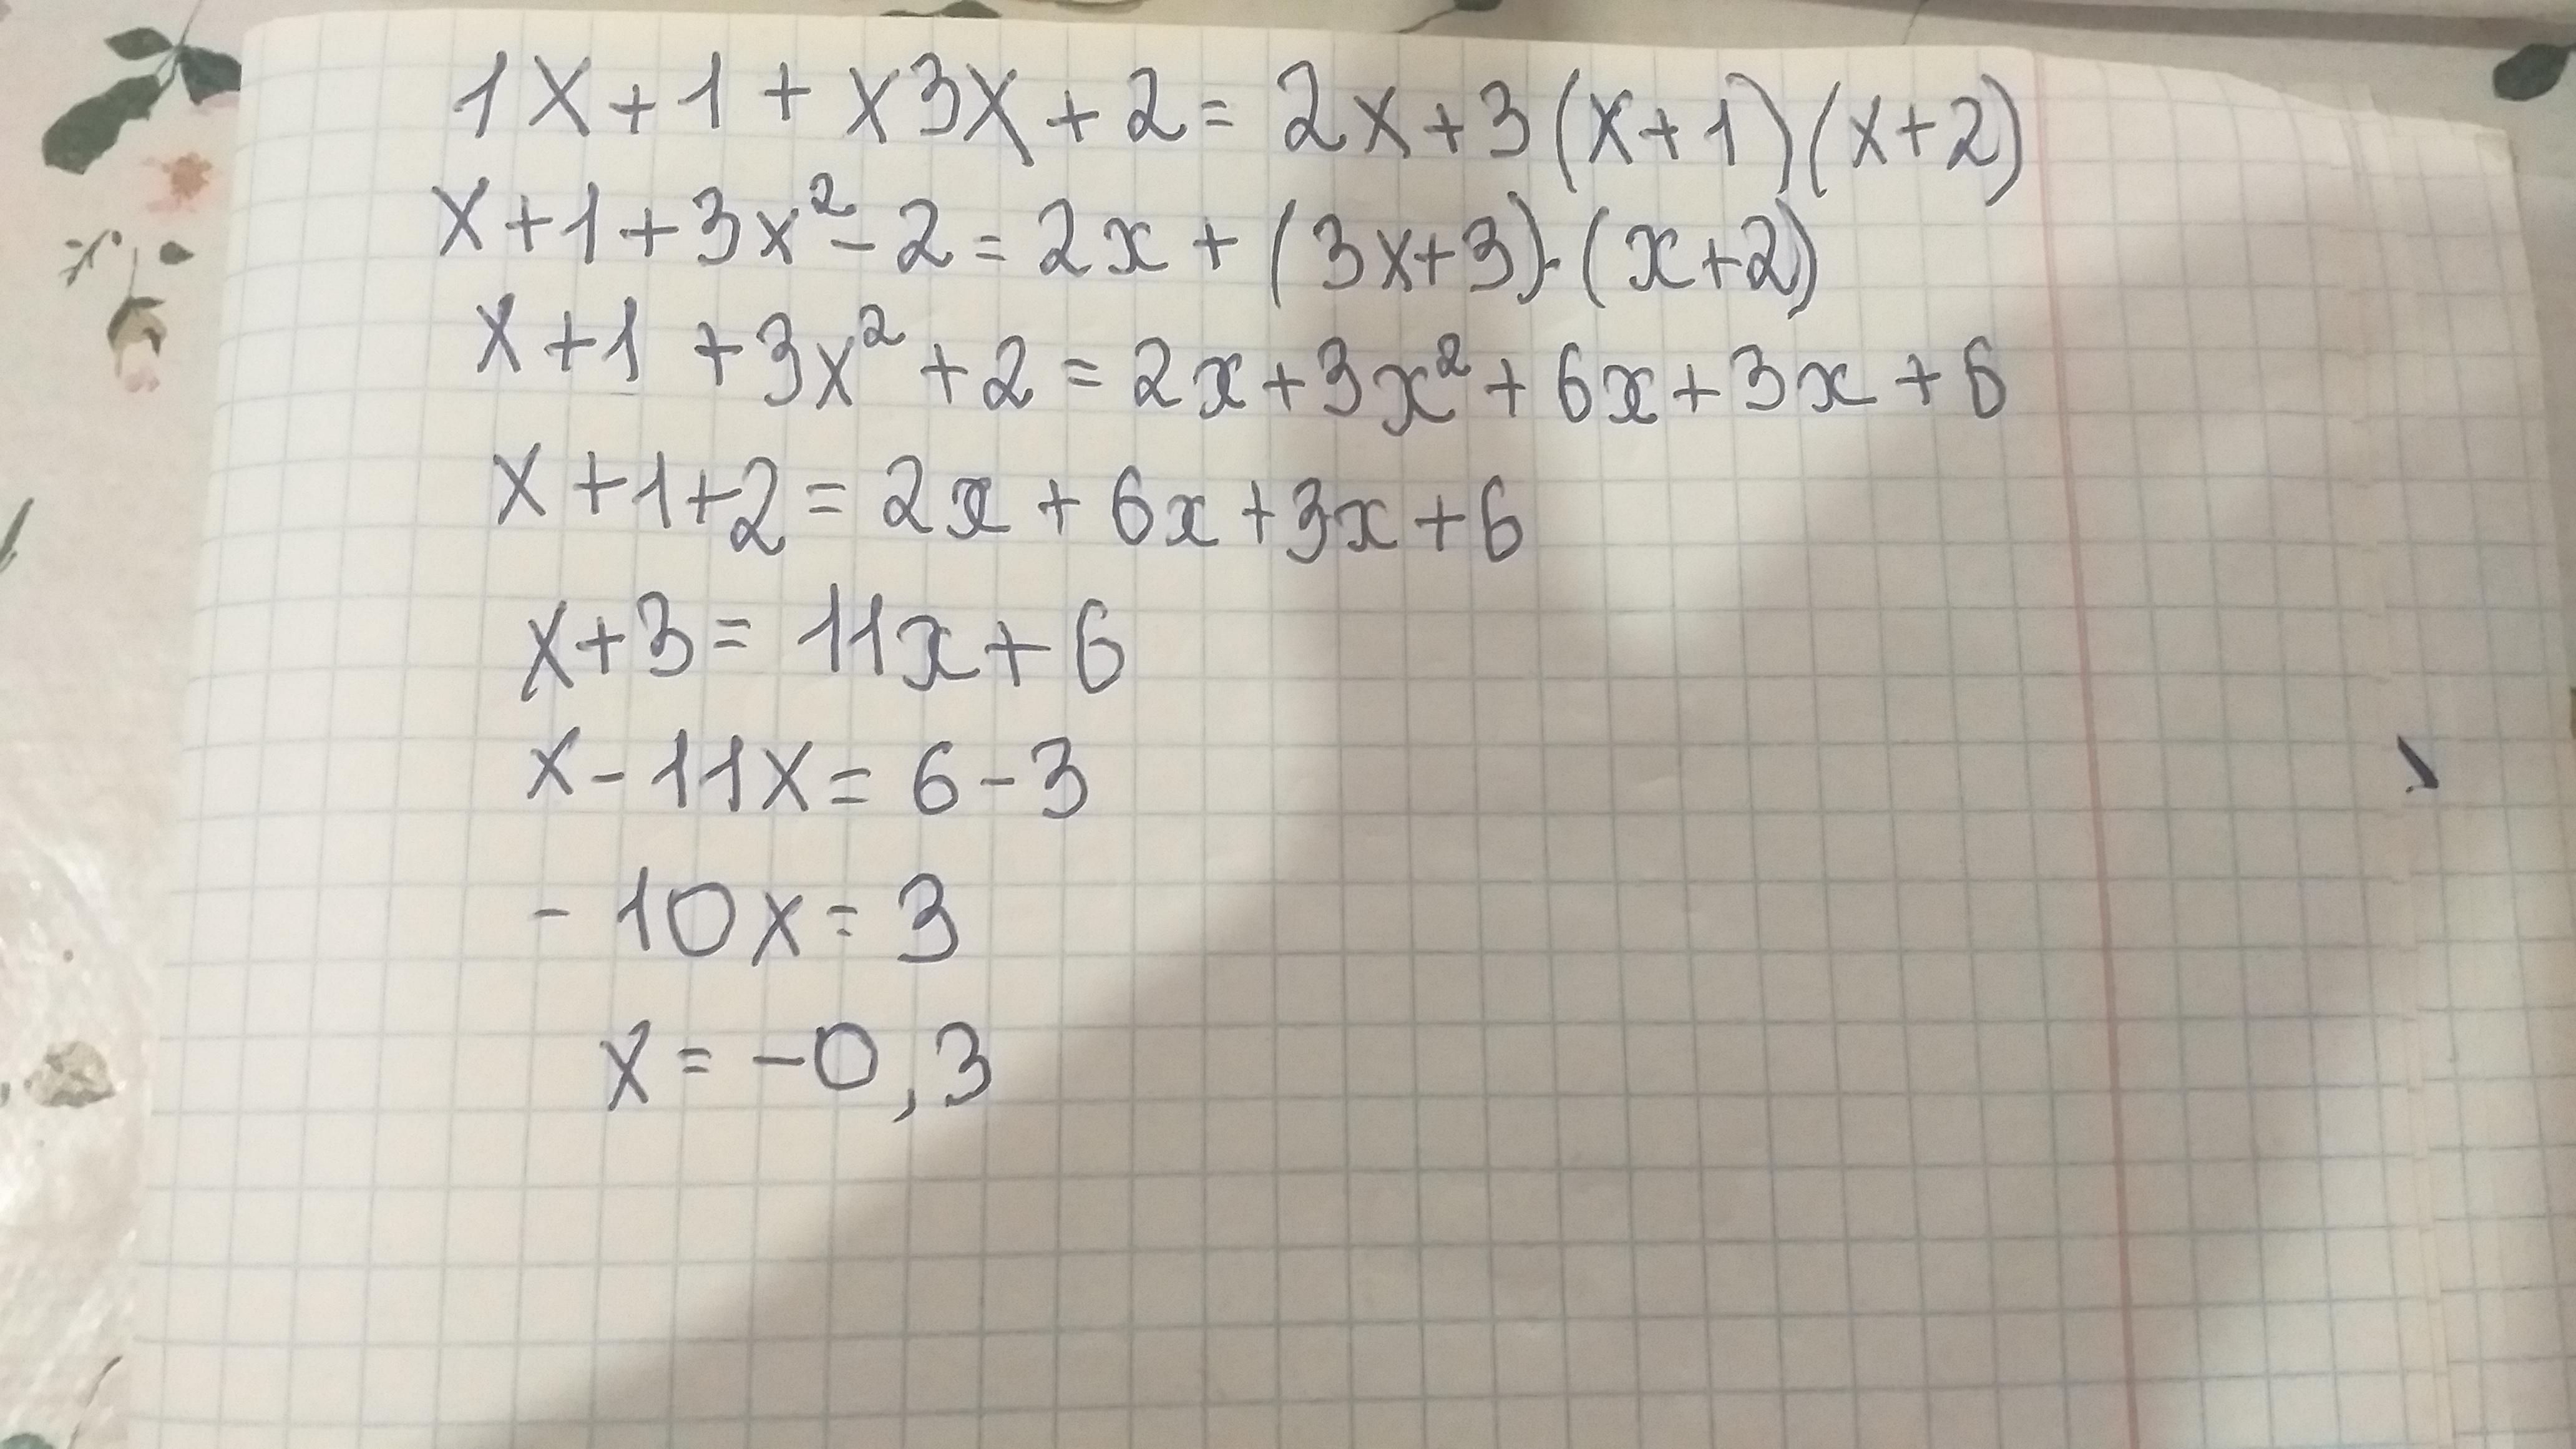 1x+1+x3x+2=2x+3(x+1)(x+2)
x+1+3x²-2=2x+(3x+3)·(x+2)
x+1+3x²+2=2x+3x²+6x+3x+6
x+1+2=2x+6x+3x+6
x+3=11x+6
x-11x=6-3
-10x=3
x=-0,3